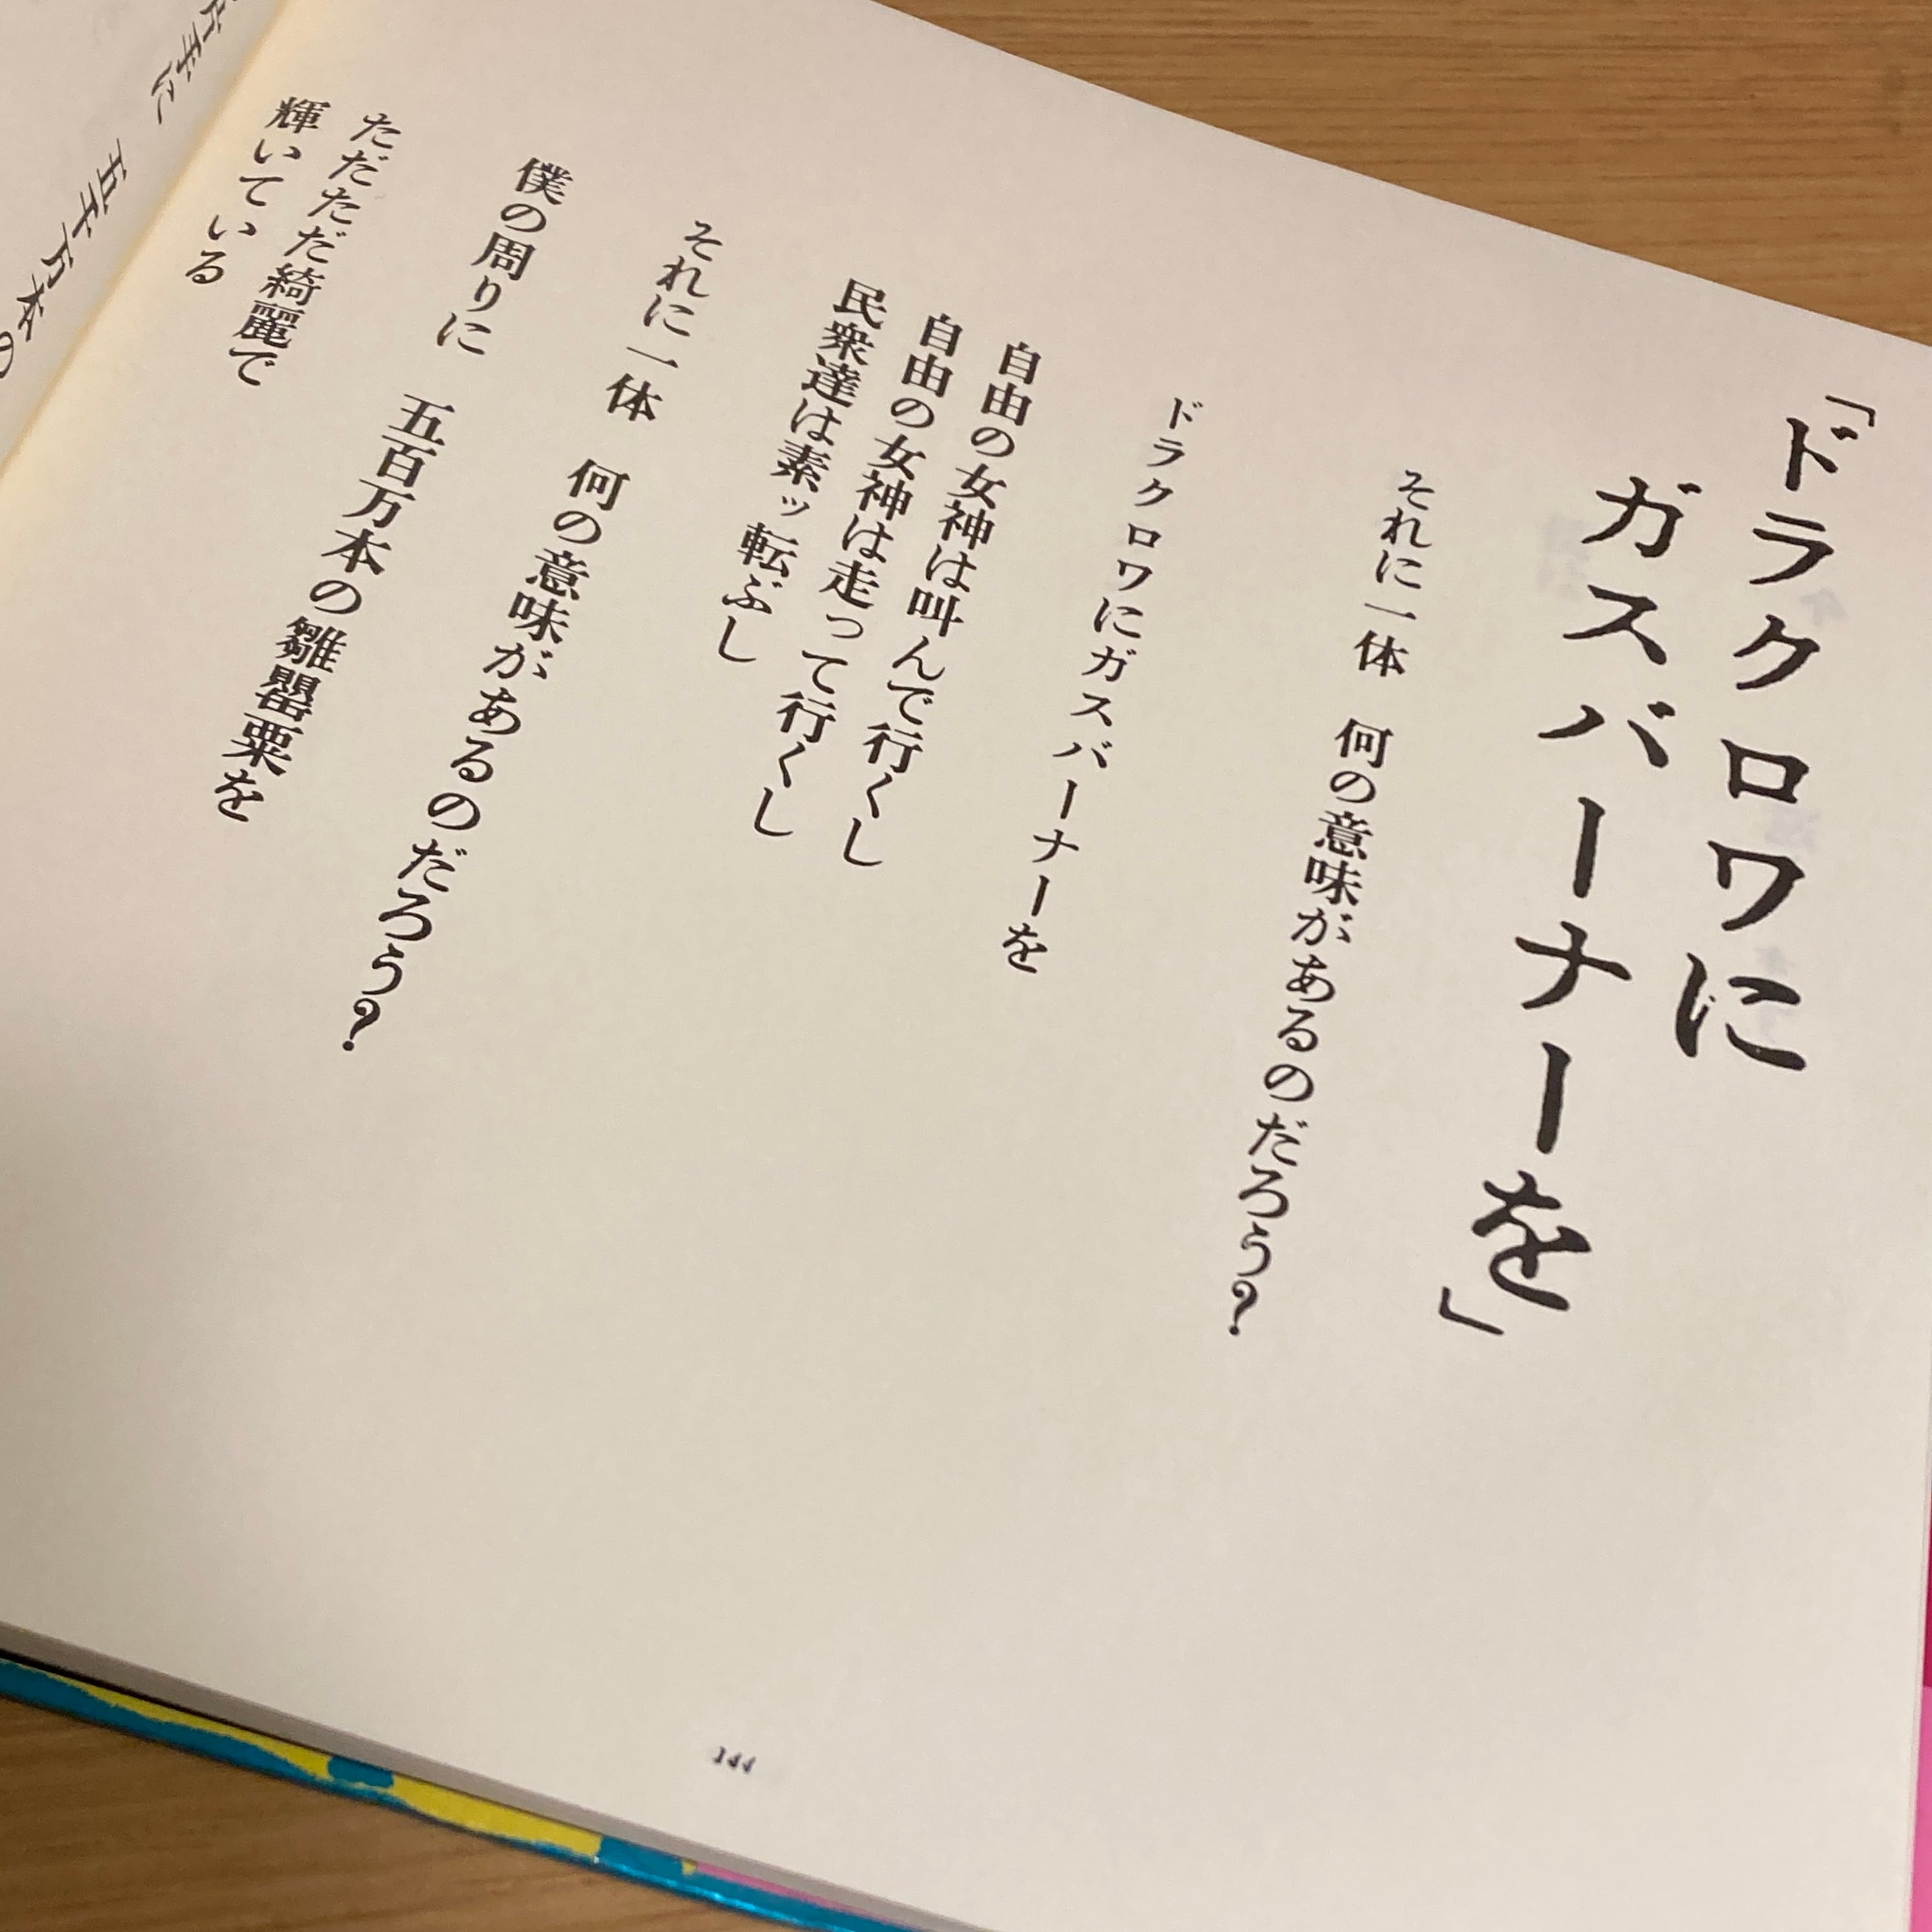 「ドラクロワに
ガスバーナーを」
それに一体　何の意味があるのだろう？
ドラクロワにガスバーナーを
自由の女神は叫んで行くし
自由の女神は走って行くし
民衆達は素ッ転ぶし
それに一体　何の意味があるのだろう？
僕の周りに　五百万本の雛罌粟を
ただただ綺麗で
輝いている
144